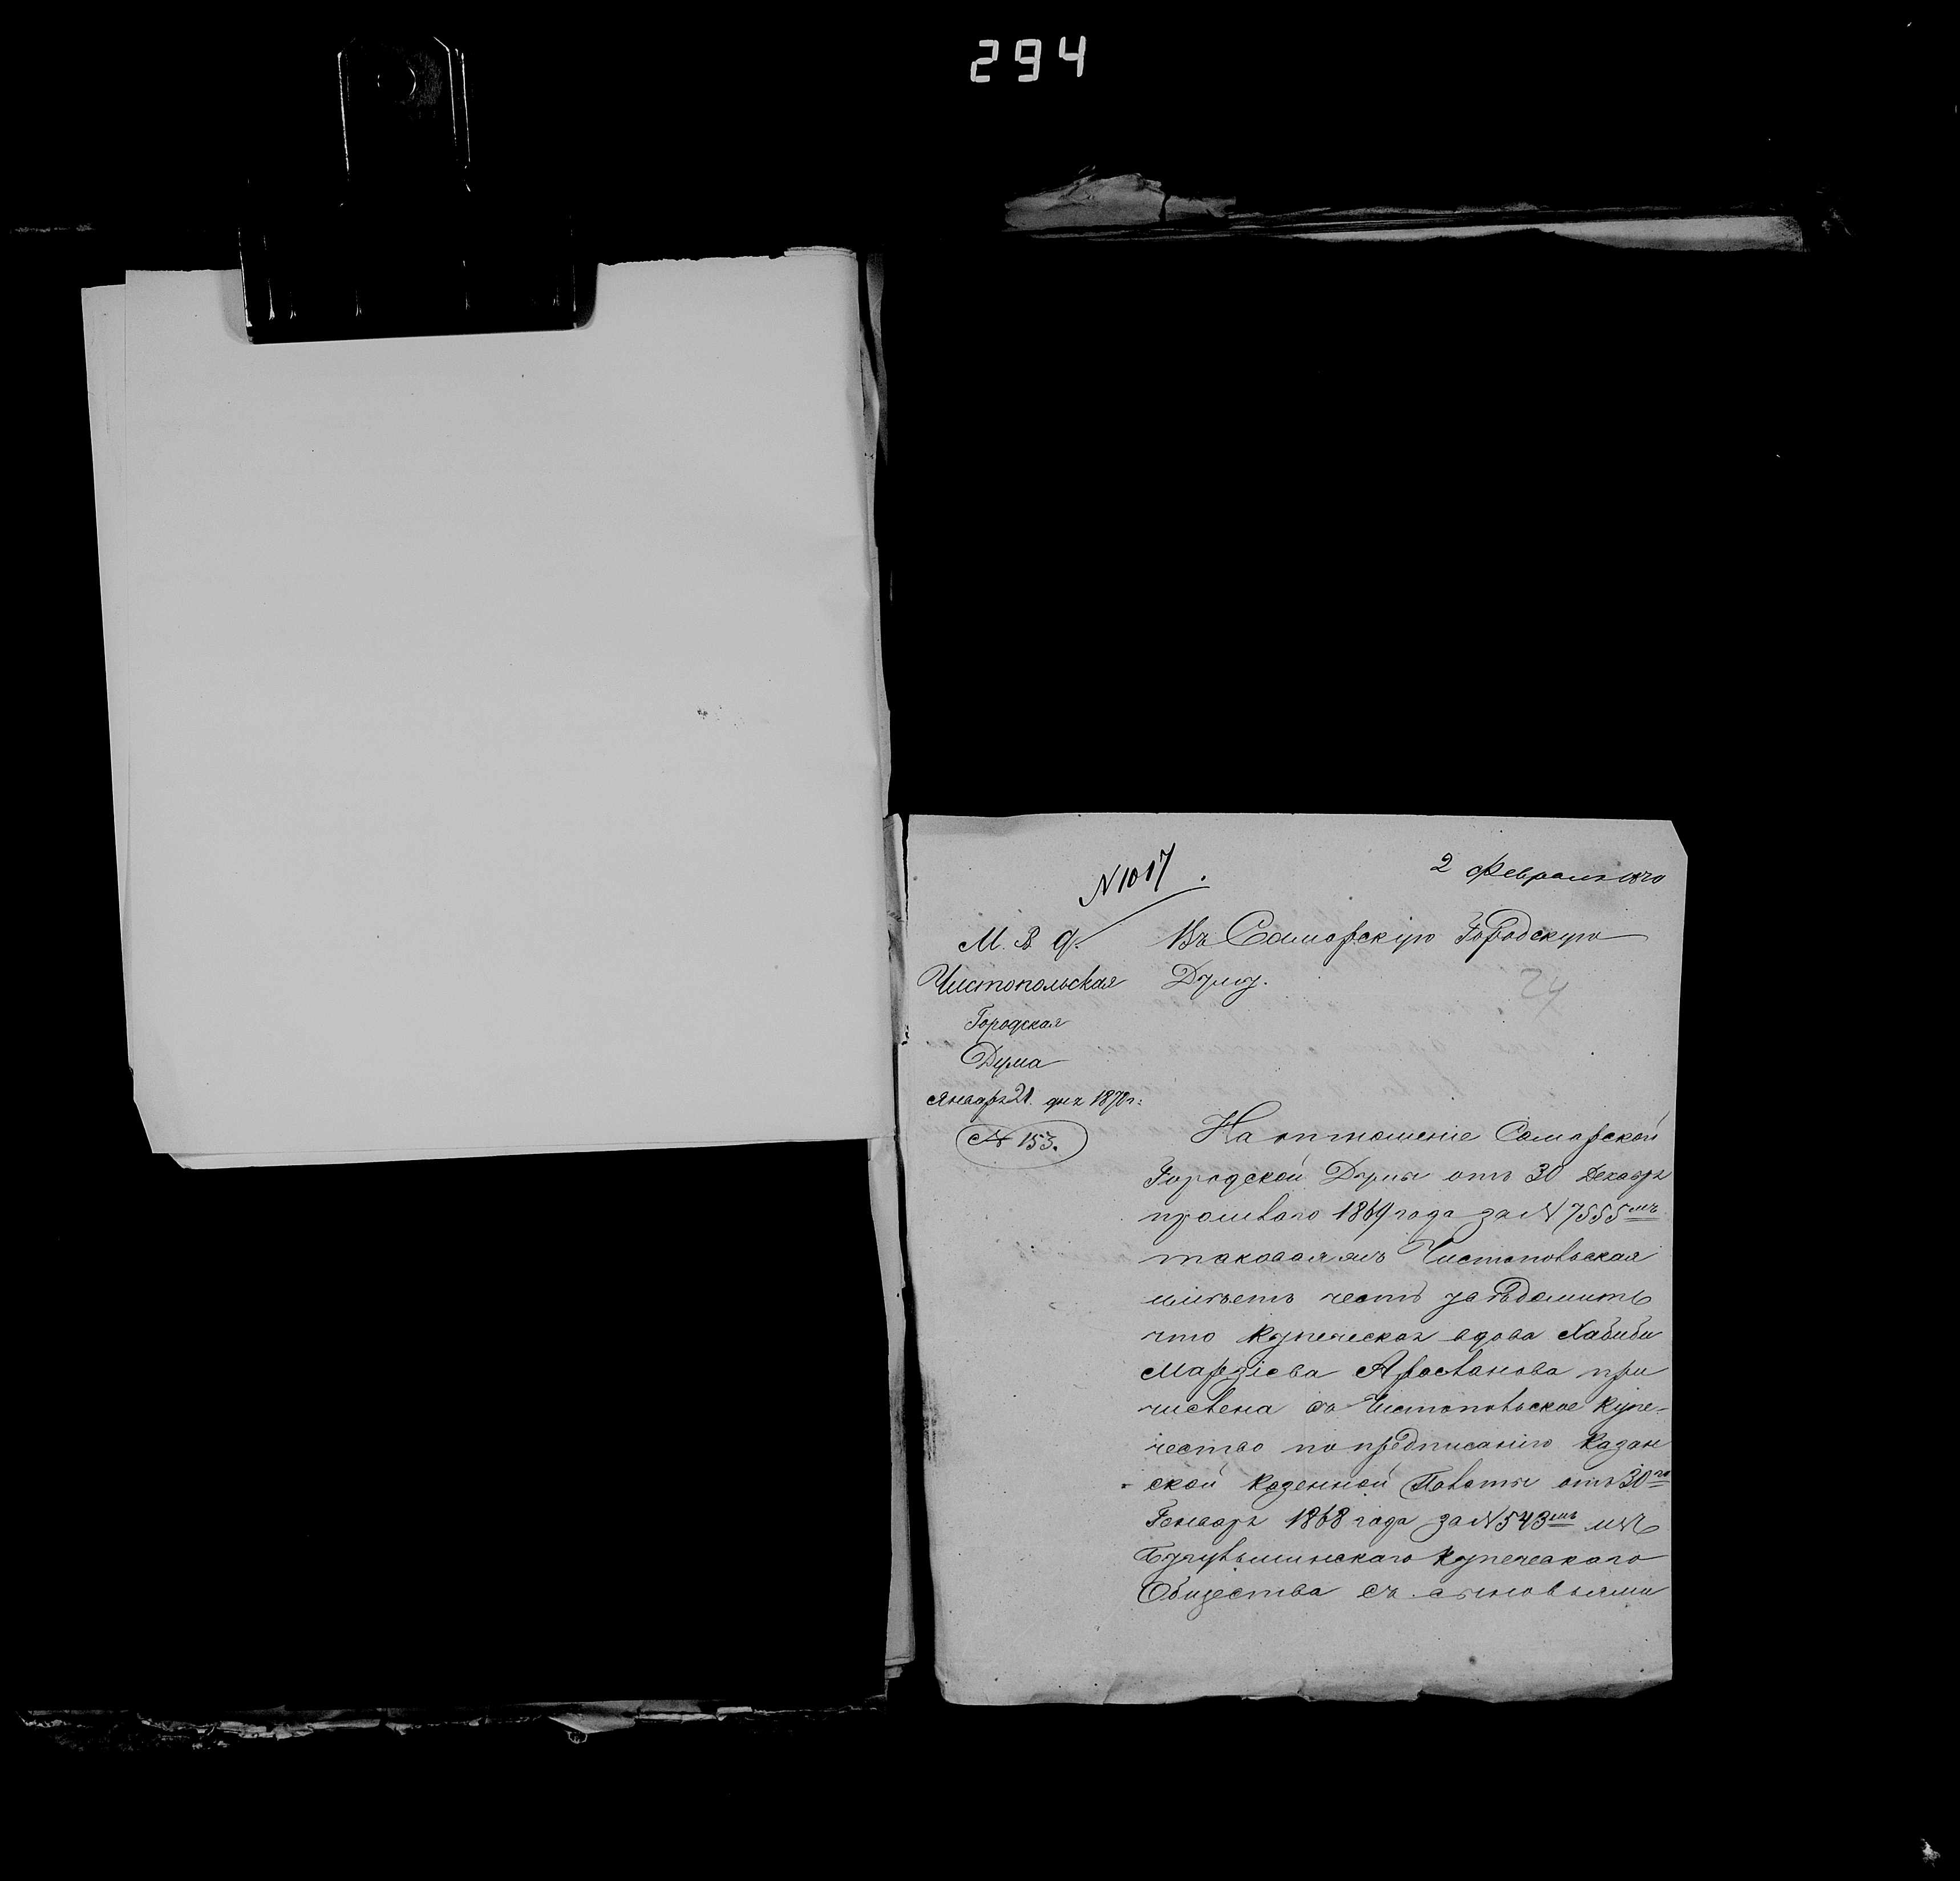 294
N 1017.
2 Февраля 1870
М. В. Д.
Чистопольская
Городская
Дума
Января 21 дня 1870 г.
№ 153.
Въ Самарскую Городскую
Думу.
24
На отношеніе Самарской
Городской Думы отъ 30 Декабря
прошлаго 1869 года за N 7555мъ
таковая Чистопольская
имѣетъ честь увѣдомить
что купеческая вдова Хабиби
Марзіева Арсланова при
числена въ Чистопольское купе-
чество по предписанію Казан
ской Казенной Палаты отъ 30го
Генваря 1868 года за N 543мъ изъ
Бугульминскаго купеческаго
Общества съ сыновьями